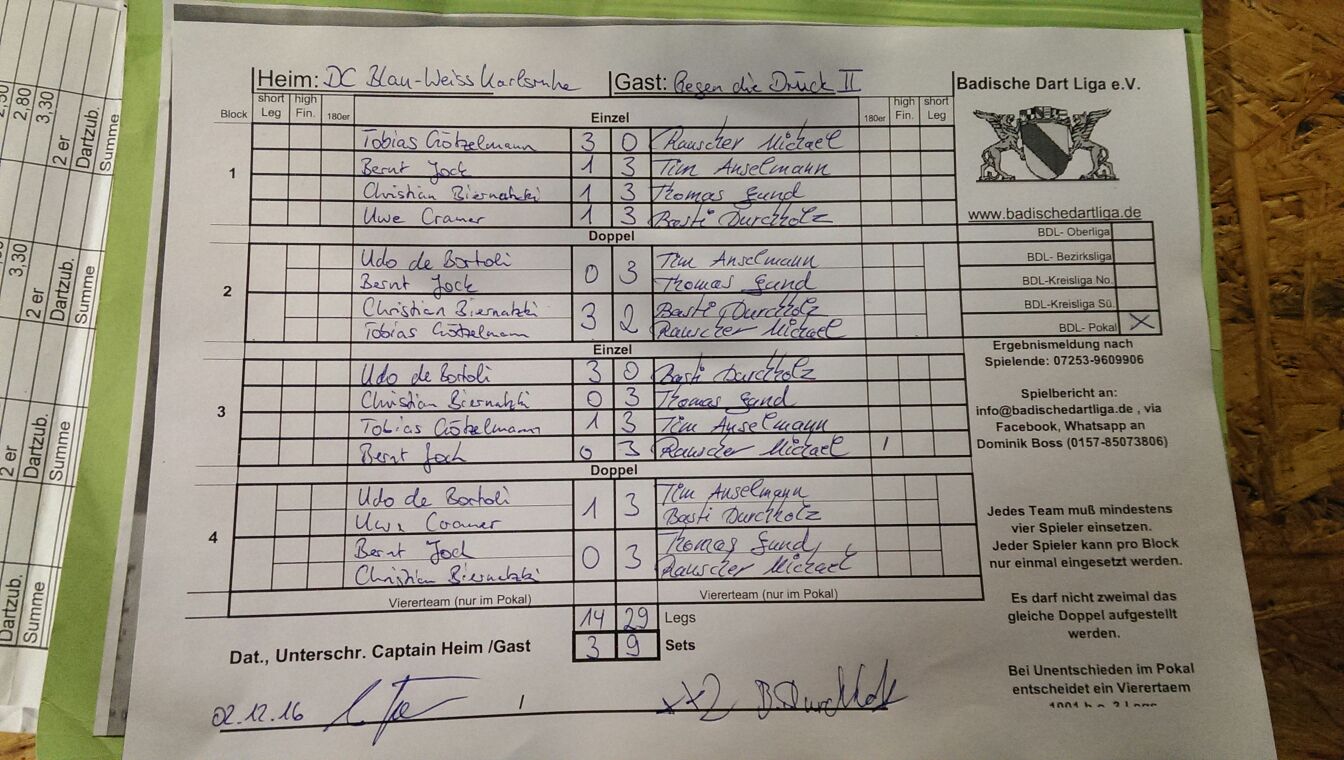 2,80
3,30
2 er
Dartzub.
Summe
3,30
2 er
Dartzub.
Summe
2 er
Dartzub.
Summe
Dartzub.
Summe
Heim: DC Blau-Weiss Karlsruhe Gast: Gegen die Drück II
Badische Dart Liga e.V.
Block short Leg high Fin. 180er Einzel 180er high Fin. short Leg
1
Tobias Götzelmann 3 0 Rauscher Michael
Bernt Jock 1 3 Tim Anselmann
Christian Biernatzki 1 3 Thomas Gund
Uwe Cramer 1 3 Basti Durchholz
www.badischedartliga.de
Doppel
2
Udo de Bortoli 0 3 Tim Anselmann
Bernt Jock Thomas Gund
Christian Biernatzki 3 2 Basti Durchholz
Tobias Götzelmann Rauscher Michael
BDL- Oberliga
BDL- Bezirksliga
BDL-Kreisliga No.
BDL-Kreisliga Sü.
BDL- Pokal X
Einzel
3
Udo de Bortoli 3 0 Basti Durchholz
Christian Biernatzki 0 3 Thomas Gund
Tobias Götzelmann 1 3 Tim Anselmann
Bernt Jock 0 3 Rauscher Michael 1
Ergebnismeldung nach
Spielende: 07253-9609906
Spielbericht an:
info@badischedartliga.de , via
Facebook, Whatsapp an
Dominik Boss (0157-85073806)
Doppel
4
Udo de Bortoli 1 3 Tim Anselmann
Uwe Cramer Basti Durchholz
Bernt Jock 0 3 Thomas Gund
Christian Biernatzki Rauscher Michael
Vierertream (nur im Pokal) Viererteam (nur im Pokal)
14 29 Legs
3 9 Sets
Dat., Unterschr. Captain Heim /Gast
Jedes Team muß mindestens
vier Spieler einsetzen.
Jeder Spieler kann pro Block
nur einmal eingesetzt werden.
Es darf nicht zweimal das
gleiche Doppel aufgestellt
werden.
Bei Unentschieden im Pokal
entscheidet ein Vierertaem
02.12.16 / B. Durchholz